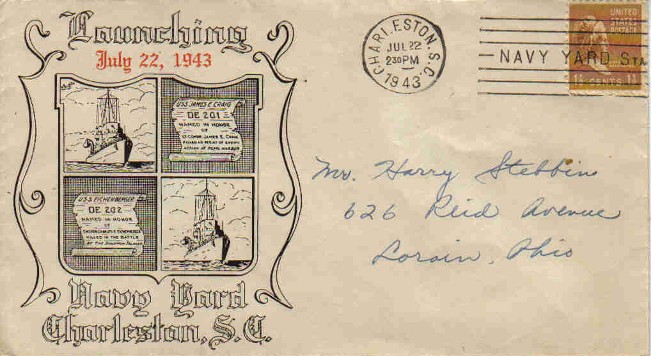 Launching
July 22, 1943
USS JAMES E. CRAIG
DE 201
NAMED IN HONOR
OF
LT. COMDR. JAMES E. CRAIG
KILLED AS RESULT OF ENEMY
ACTION AT PEARL HARBOR
U.S.S. EICHENBERGER
DE 202
NAMED IN HONOR
OF
KILLED IN THE BATTLE
OF THE SOLOMON ISLANDS
Navy Yard
Charleston, S.C.
CHARLESTON, S.C.
JUL 22
230 PM
1943
NAVY YARD STA.
UNITED
STATES
POSTAGE
1½ CENTS 1½
Mr. Harry Stebbins
626 Reid Avenue
Lorain, Ohio